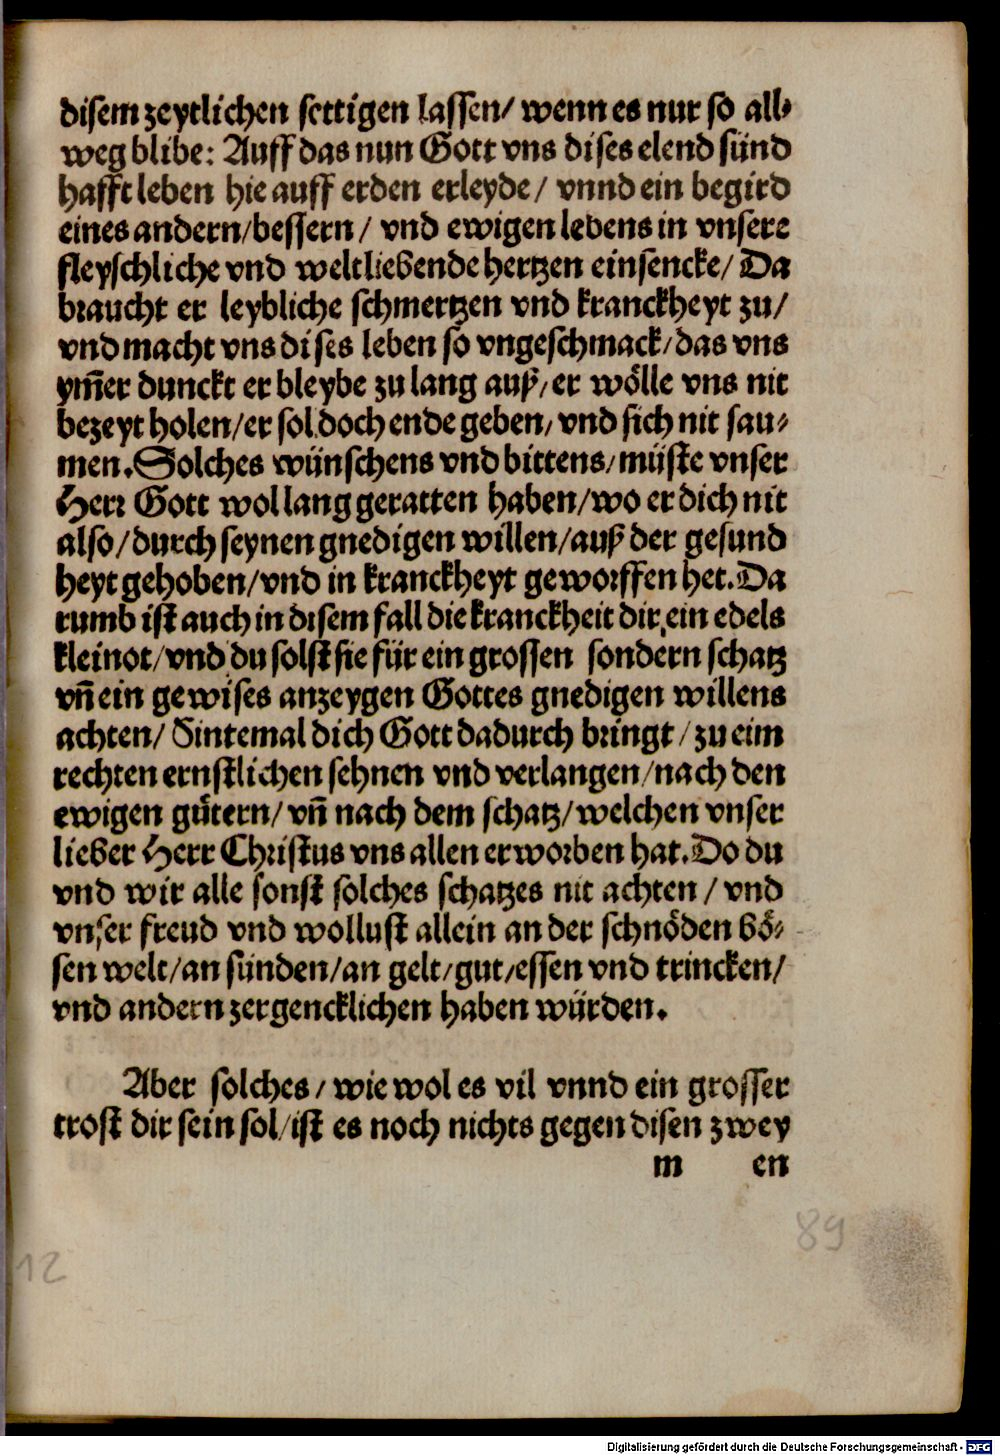 disem zeytlichen settigen lassen/ wenn es nur so all⸗
weg blibe: Auff das nun Gott vns dises elend sünd
hafft leben hie auff erden erleyde/ vnnd ein begird
eines andern/bessern/ vnd ewigen lebens in vnsere
fleyschliche vnd weltliebende hertzen einsencke/ Da
braucht er leybliche schmertzen vnd kranckheyt zu/
vnd macht vns dises leben so vngeschmack/das vns
ym̃er dunckt er bleybe zu lang auß/er wölle vns nit
bezeyt holen/er sol doch ende geben/ vnd sich nit sau⸗
men. Solches wünschens vnd bittens/müste vnser
Herr Gott wol lang geratten haben/wo er dich nit
also/durch seynen gnedigen willen/auß der gesund
heyt gehoben/vnd in kranckheyt geworffen het. Da
rumb ist auch in disem fall die kranckheit dir, ein edels
kleinot/vnd du solst sie für ein grossen sondern schatz
vñ ein gewises anzeygen Gottes gnedigen willens
achten/ Sintemal dich Gott dadurch bringt/zu eim
rechten ernstlichen sehnen vnd verlangen/nach den
ewigen gůtern/ vñ nach dem schatz/welchen vnser
lieber Herr Christus vns allen erworben hat. Do du
vnd wir alle sonst solches schatzes nit achten/ vnd
vnser freud vnd wollust allein an der schnöden bö⸗
sen welt/an sünden/an gelt/gut/essen vnd trincken/
vnd andern zergencklichen haben würden.
Aber solches/ wie wol es vil vnnd ein grosser
trost dir sein sol/ist es noch nichts gegen disen zwey
m en
89
12
Digitalisierung gefördert durch die Deutsche Forschungsgemeinschaft - DFG